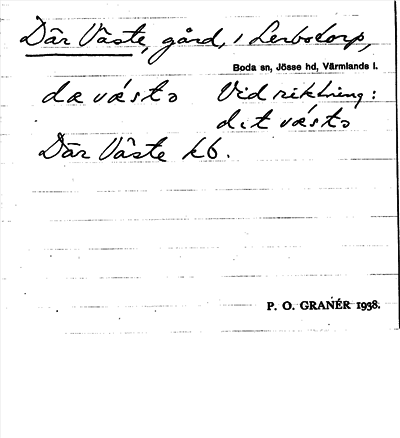 Där Väste, gård, i Lerbodorp,
Boda sn, Jösse hd, Värmlands l.
dæ væstə Vid riktning:
dit væstə
Där Väste kb.
P. O. GRANÉR 1938.